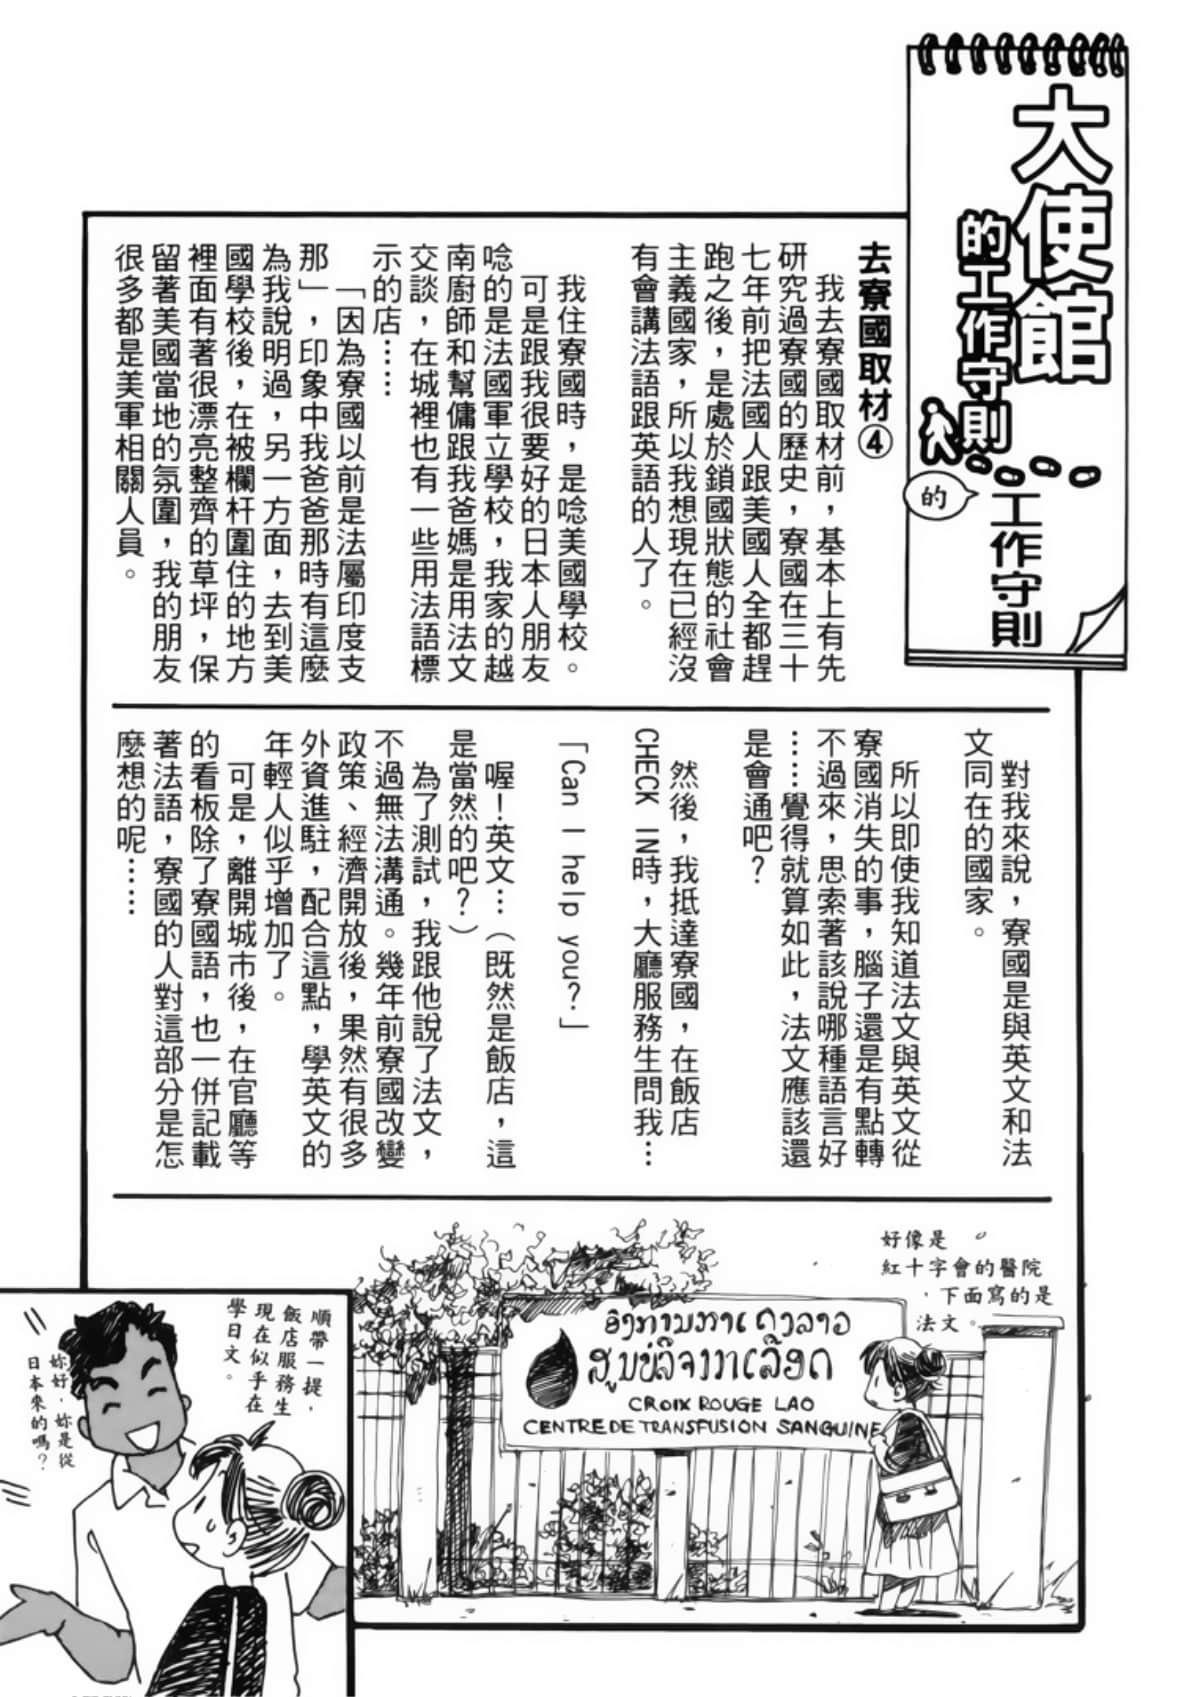 大使館
的工作守則
的
工作守則
去寮國取材④
　我去寮國取材前，基本上有先
研究過寮國的歷史，寮國在三十
七年前把法國人跟美國人全都趕
跑之後，是處於鎖國狀態的社會
主義國家，所以我想現在已經沒
有會講法語跟英語的人了。
　我住寮國時，是唸美國學校。
　可是跟我很要好的日本人朋友
唸的是法國軍立學校，我家的越
南廚師和幫傭跟我爸媽是用法文
交談，在城裡也有一些用法語標
示的店……
　「因為寮國以前是法屬印度支
那」，印象中我爸爸那時有這麼
為我說明過，另一方面，去到美
國學校後，在被欄杆圍住的地方
裡面有著很漂亮整齊的草坪，保
留著美國當地的氛圍，我的朋友
很多都是美軍相關人員。
　對我來說，寮國是與英文和法
文同在的國家。
　所以即使我知道法文與英文從
寮國消失的事，腦子還是有點轉
不過來，思索著該說哪種語言好
……覺得就算如此，法文應該還
是會通吧？
　然後，我抵達寮國，在飯店
CHECK IN時，大廳服務生問我…
「Can I help you?」
　喔！英文…（既然是飯店，這
是當然的吧？）
　為了測試，我跟他說了法文，
不過無法溝通。幾年前寮國改變
政策、經濟開放後，果然有很多
外資進駐，配合這點，學英文的
年輕人似乎增加了。
　可是，離開城市後，在官廳等
的看板除了寮國語，也一併記載
著法語，寮國的人對這部分是怎
麼想的呢……
好像是
紅十字會的醫院
，下面寫的是
法文。
CROIX ROUGE LAO
CENTRE DE TRANSFUSION SANGUINE
順帶一提，
飯店服務生
現在似乎在
學日文。
妳好，妳是從
日本來的嗎？